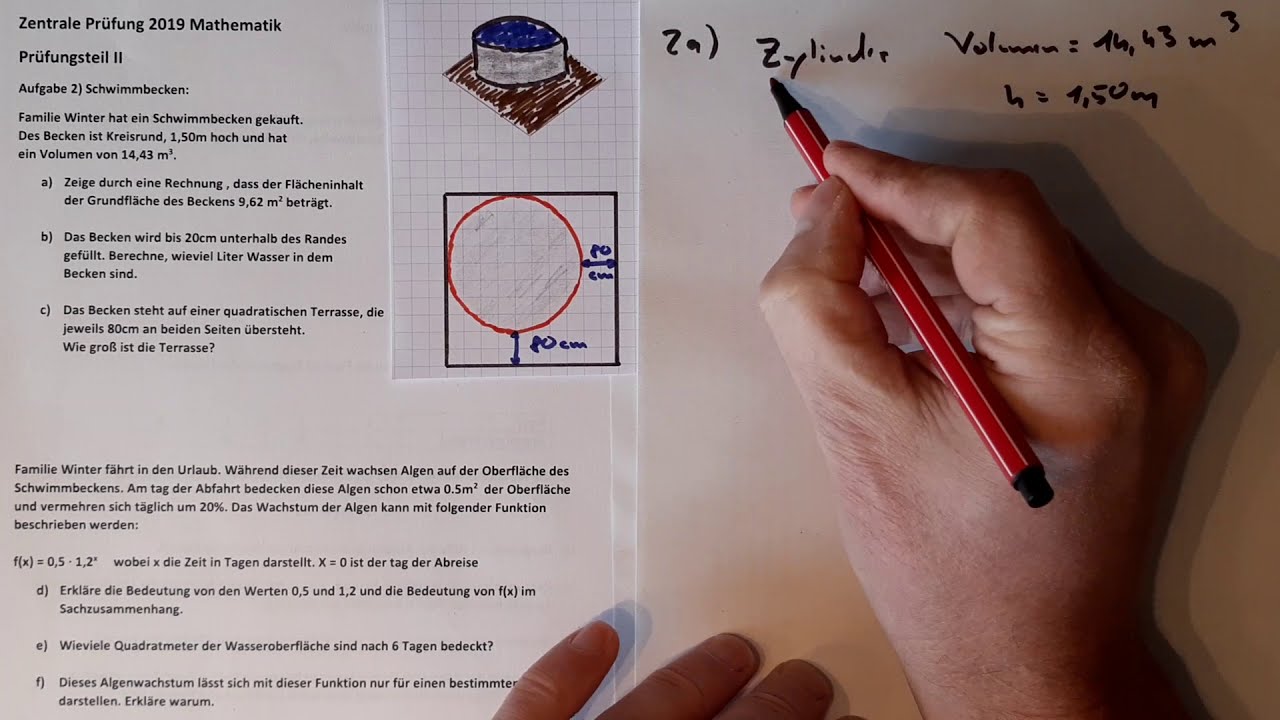 Zentrale Prüfung 2019 Mathematik
Prüfungsteil II
Aufgabe 2) Schwimmbecken:
Familie Winter hat ein Schwimmbecken gekauft.
Des Becken ist Kreisrund, 1,50m hoch und hat
ein Volumen von 14,43 m³.
a) Zeige durch eine Rechnung , dass der Flächeninhalt
der Grundfläche des Beckens 9,62 m² beträgt.
b) Das Becken wird bis 20cm unterhalb des Randes
gefüllt. Berechne, wieviel Liter Wasser in dem
Becken sind.
c) Das Becken steht auf einer quadratischen Terrasse, die
jeweils 80cm an beiden Seiten übersteht.
Wie groß ist die Terrasse?
80
cm
80cm
Familie Winter fährt in den Urlaub. Während dieser Zeit wachsen Algen auf der Oberfläche des
Schwimmbeckens. Am tag der Abfahrt bedecken diese Algen schon etwa 0.5m² der Oberfläche
und vermehren sich täglich um 20%. Das Wachstum der Algen kann mit folgender Funktion
beschrieben werden:
f(x) = 0,5 · 1,2ˣ wobei x die Zeit in Tagen darstellt. X = 0 ist der tag der Abreise
d) Erkläre die Bedeutung von den Werten 0,5 und 1,2 und die Bedeutung von f(x) im
Sachzusammenhang.
e) Wieviele Quadratmeter der Wasseroberfläche sind nach 6 Tagen bedeckt?
f) Dieses Algenwachstum lässt sich mit dieser Funktion nur für einen bestimmten
darstellen. Erkläre warum.
2a) Zylinder Volumen = 14,43 m³
h = 1,50m